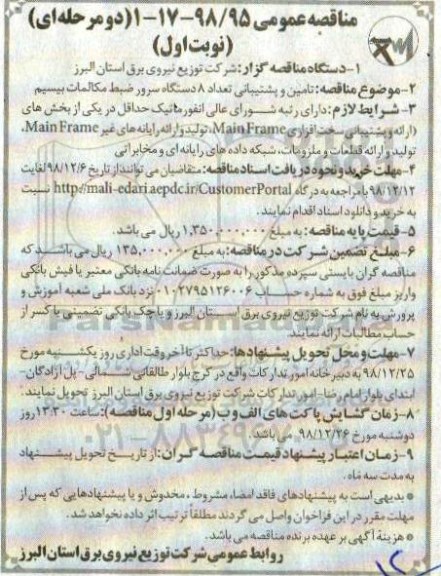 مناقصه عمومی ۹۸/۹۵-۱۷-۱ (دو مرحله ای)
(نوبت اول)
۱- دستگاه مناقصه گزار: شرکت توزیع نیروی برق استان البرز
۲- موضوع مناقصه: تامین و پشتیبانی تعداد ۸ دستگاه سرور ضبط مکالمات بیسیم
۳- شرایط لازم: دارای رتبه شورای عالی انفورماتیک حداقل در یکی از بخش های
(ارائه و پشتیبانی سخت افزاری Main Frame، تولید و ارائه رایانه های غیر Main Frame،
تولید و ارائه قطعات و ملزومات، شبکه داده های رایانه ای و مخابراتی
۴- مهلت خرید و نحوه دریافت اسناد مناقصه: متقاضیان می توانند از تاریخ ۹۸/۱۲/۶ لغایت
۹۸/۱۲/۱۲ با مراجعه به درگاه http://mali-edari.aepdc.ir/CustomerPortal نسبت
به خرید و دانلود اسناد اقدام نمایند.
۵- قیمت پایه مناقصه: به مبلغ ۱,۳۵۰,۰۰۰,۰۰۰ ریال می باشد.
۶- مبلغ تضمین شرکت در مناقصه: به مبلغ ۱۳۵,۰۰۰,۰۰۰ ریال می باشد که
مناقصه گران بایستی سپرده مذکور را به صورت ضمانت نامه بانکی معتبر یا فیش بانکی
واریز مبلغ فوق به شماره حساب ۰۱۰۲۷۹۵۱۲۶۰۰۶ نزد بانک ملی شعبه آموزش و
پرورش به نام شرکت توزیع نیروی برق استان البرز و یا چک بانکی تضمینی یا کسر از
حساب مطالبات ارائه نمایند.
۷- مهلت و محل تحویل پیشنهادها: حداکثر تا آخر وقت اداری روز یکشنبه مورخ
۹۸/۱۲/۲۵ به دبیرخانه امور تدارکات واقع در کرج بلوار طالقانی شمالی - پل آزادگان -
ابتدای بلوار امام رضا - امور تدارکات شرکت توزیع نیروی برق استان البرز تحویل نمایند.
۸- زمان گشایش پاکت های الف و ب (مرحله اول مناقصه): ساعت ۱۳:۳۰ روز
دوشنبه مورخ ۹۸/۱۲/۲۶ می باشد.
۹- زمان اعتبار پیشنهاد قیمت مناقصه گران: از تاریخ تحویل پیشنهاد
به مدت سه ماه.
* بدیهی است به پیشنهادهای فاقد امضاء، مشروط، مخدوش و یا پیشنهادهایی که پس از
مهلت مقرر در این فراخوان واصل می گردند مطلقاً ترتیب اثر داده نخواهد شد.
* هزینه آگهی بر عهده برنده مناقصه می باشد.
روابط عمومی شرکت توزیع نیروی برق استان البرز
ParsNamadData
۰۲۱-۸۸۳۴۹۶۷۰